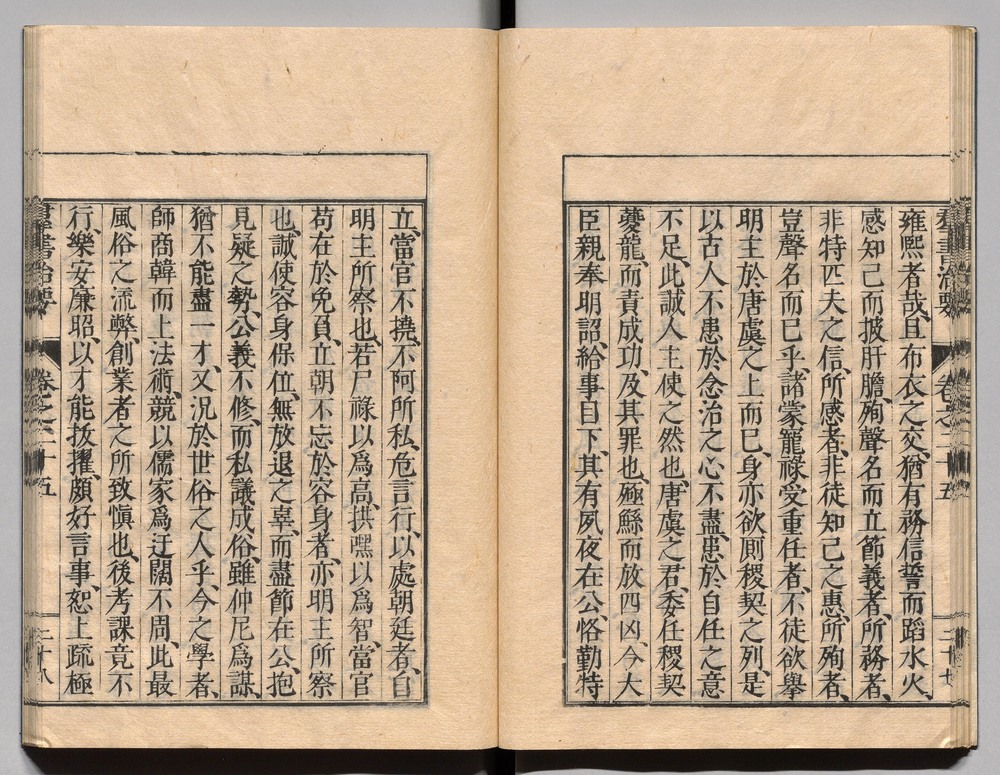 群書治要 卷之二十五 二十七
雍熙者哉、且布衣之交、猶有務信誓而蹈水火、
感知己而披肝膽、殉聲名而立節義者、所務者、
非特匹夫之信、所感者、非徒知己之惠、所殉者、
豈聲名而已乎、諸蒙寵祿受重任者、不徒欲舉
明主於唐虞之上而已、身亦欲厠稷契之列、是
以古人不患於念治之心不盡、患於自任之意
不足、此誠人主使之然也、唐虞之君、委任稷契
夔龍、而責成功、及其罪也、殛鯀而放四凶、今大
臣親奉明詔、給事目下、其有夙夜在公、恪勤特
立、當官不撓、不阿所私、危言行、以處朝廷者、自
明主所察也、若尸祿以爲高、拱嘿以爲智、當官
苟在於免負、立朝不忘於容身者、亦明主所察
也、誠使容身保位、無放退之辜、而盡節在公、抱
見疑之勢、公義不修、而私議成俗、雖仲尼爲謀、
猶不能盡一才、又況於世俗之人乎、今之學者、
師商韓而上法術、競以儒家爲迂闊不周、此最
風俗之流弊、創業者之所致愼也、後考課竟不
行、樂安廉昭、以才能拔擢、頗好言事、恕上疏極
群書治要 卷之二十五 二十八